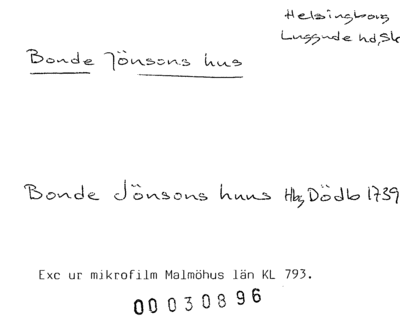 Helsingborg
Luggude hd, Sk
Bonde Jönsons hus
Bonde Jönsons huus Hbg Dödb 1739
Exc ur mikrofilm Malmöhus län KL 793.
00030896